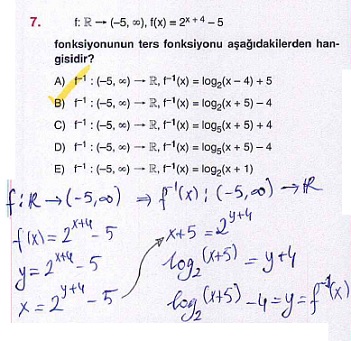 7. f: ℝ → (–5, ∞), f(x) = 2ˣ⁺⁴ – 5
fonksiyonunun ters fonksiyonu aşağıdakilerden han-
gisidir?
A) f⁻¹ : (–5, ∞) → ℝ, f⁻¹(x) = log₂(x – 4) + 5
B) f⁻¹ : (–5, ∞) → ℝ, f⁻¹(x) = log₂(x + 5) – 4
C) f⁻¹ : (–5, ∞) → ℝ, f⁻¹(x) = log₅(x + 5) + 4
D) f⁻¹ : (–5, ∞) → ℝ, f⁻¹(x) = log₅(x + 5) – 4
E) f⁻¹ : (–5, ∞) → ℝ, f⁻¹(x) = log₂(x + 1)
f: ℝ → (-5, ∞) ⇒ f⁻¹(x) : (-5, ∞) → ℝ
f(x) = 2ˣ⁺⁴ - 5
y = 2ˣ⁺⁴ - 5
x = 2ʸ⁺⁴ - 5
x+5 = 2ʸ⁺⁴
log₂(x+5) = y+4
log₂(x+5) - 4 = y = f⁻¹(x)